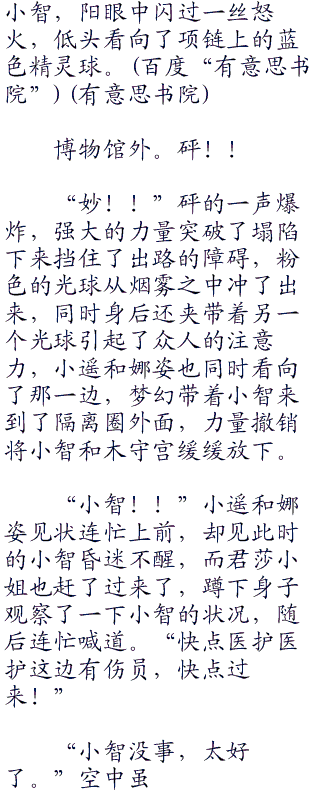 小智，阳眼中闪过一丝怒
火，低头看向了项链上的蓝
色精灵球。(百度“有意思书
院”)(有意思书院)
博物馆外。砰！！
“妙！！”砰的一声爆
炸，强大的力量突破了塌陷
下来挡住了出路的障碍，粉
色的光球从烟雾之中冲了出
来，同时身后还夹带着另一
个光球引起了众人的注意
力，小遥和娜姿也同时看向
了那一边，梦幻带着小智来
到了隔离圈外面，力量撤销
将小智和木守宫缓缓放下。
“小智！！”小遥和娜
姿见状连忙上前，却见此时
的小智昏迷不醒，而君莎小
姐也赶了过来了，蹲下身子
观察了一下小智的状况，随
后连忙喊道。“快点医护医
护这边有伤员，快点过
来！”
“小智没事，太好
了。”空中虽